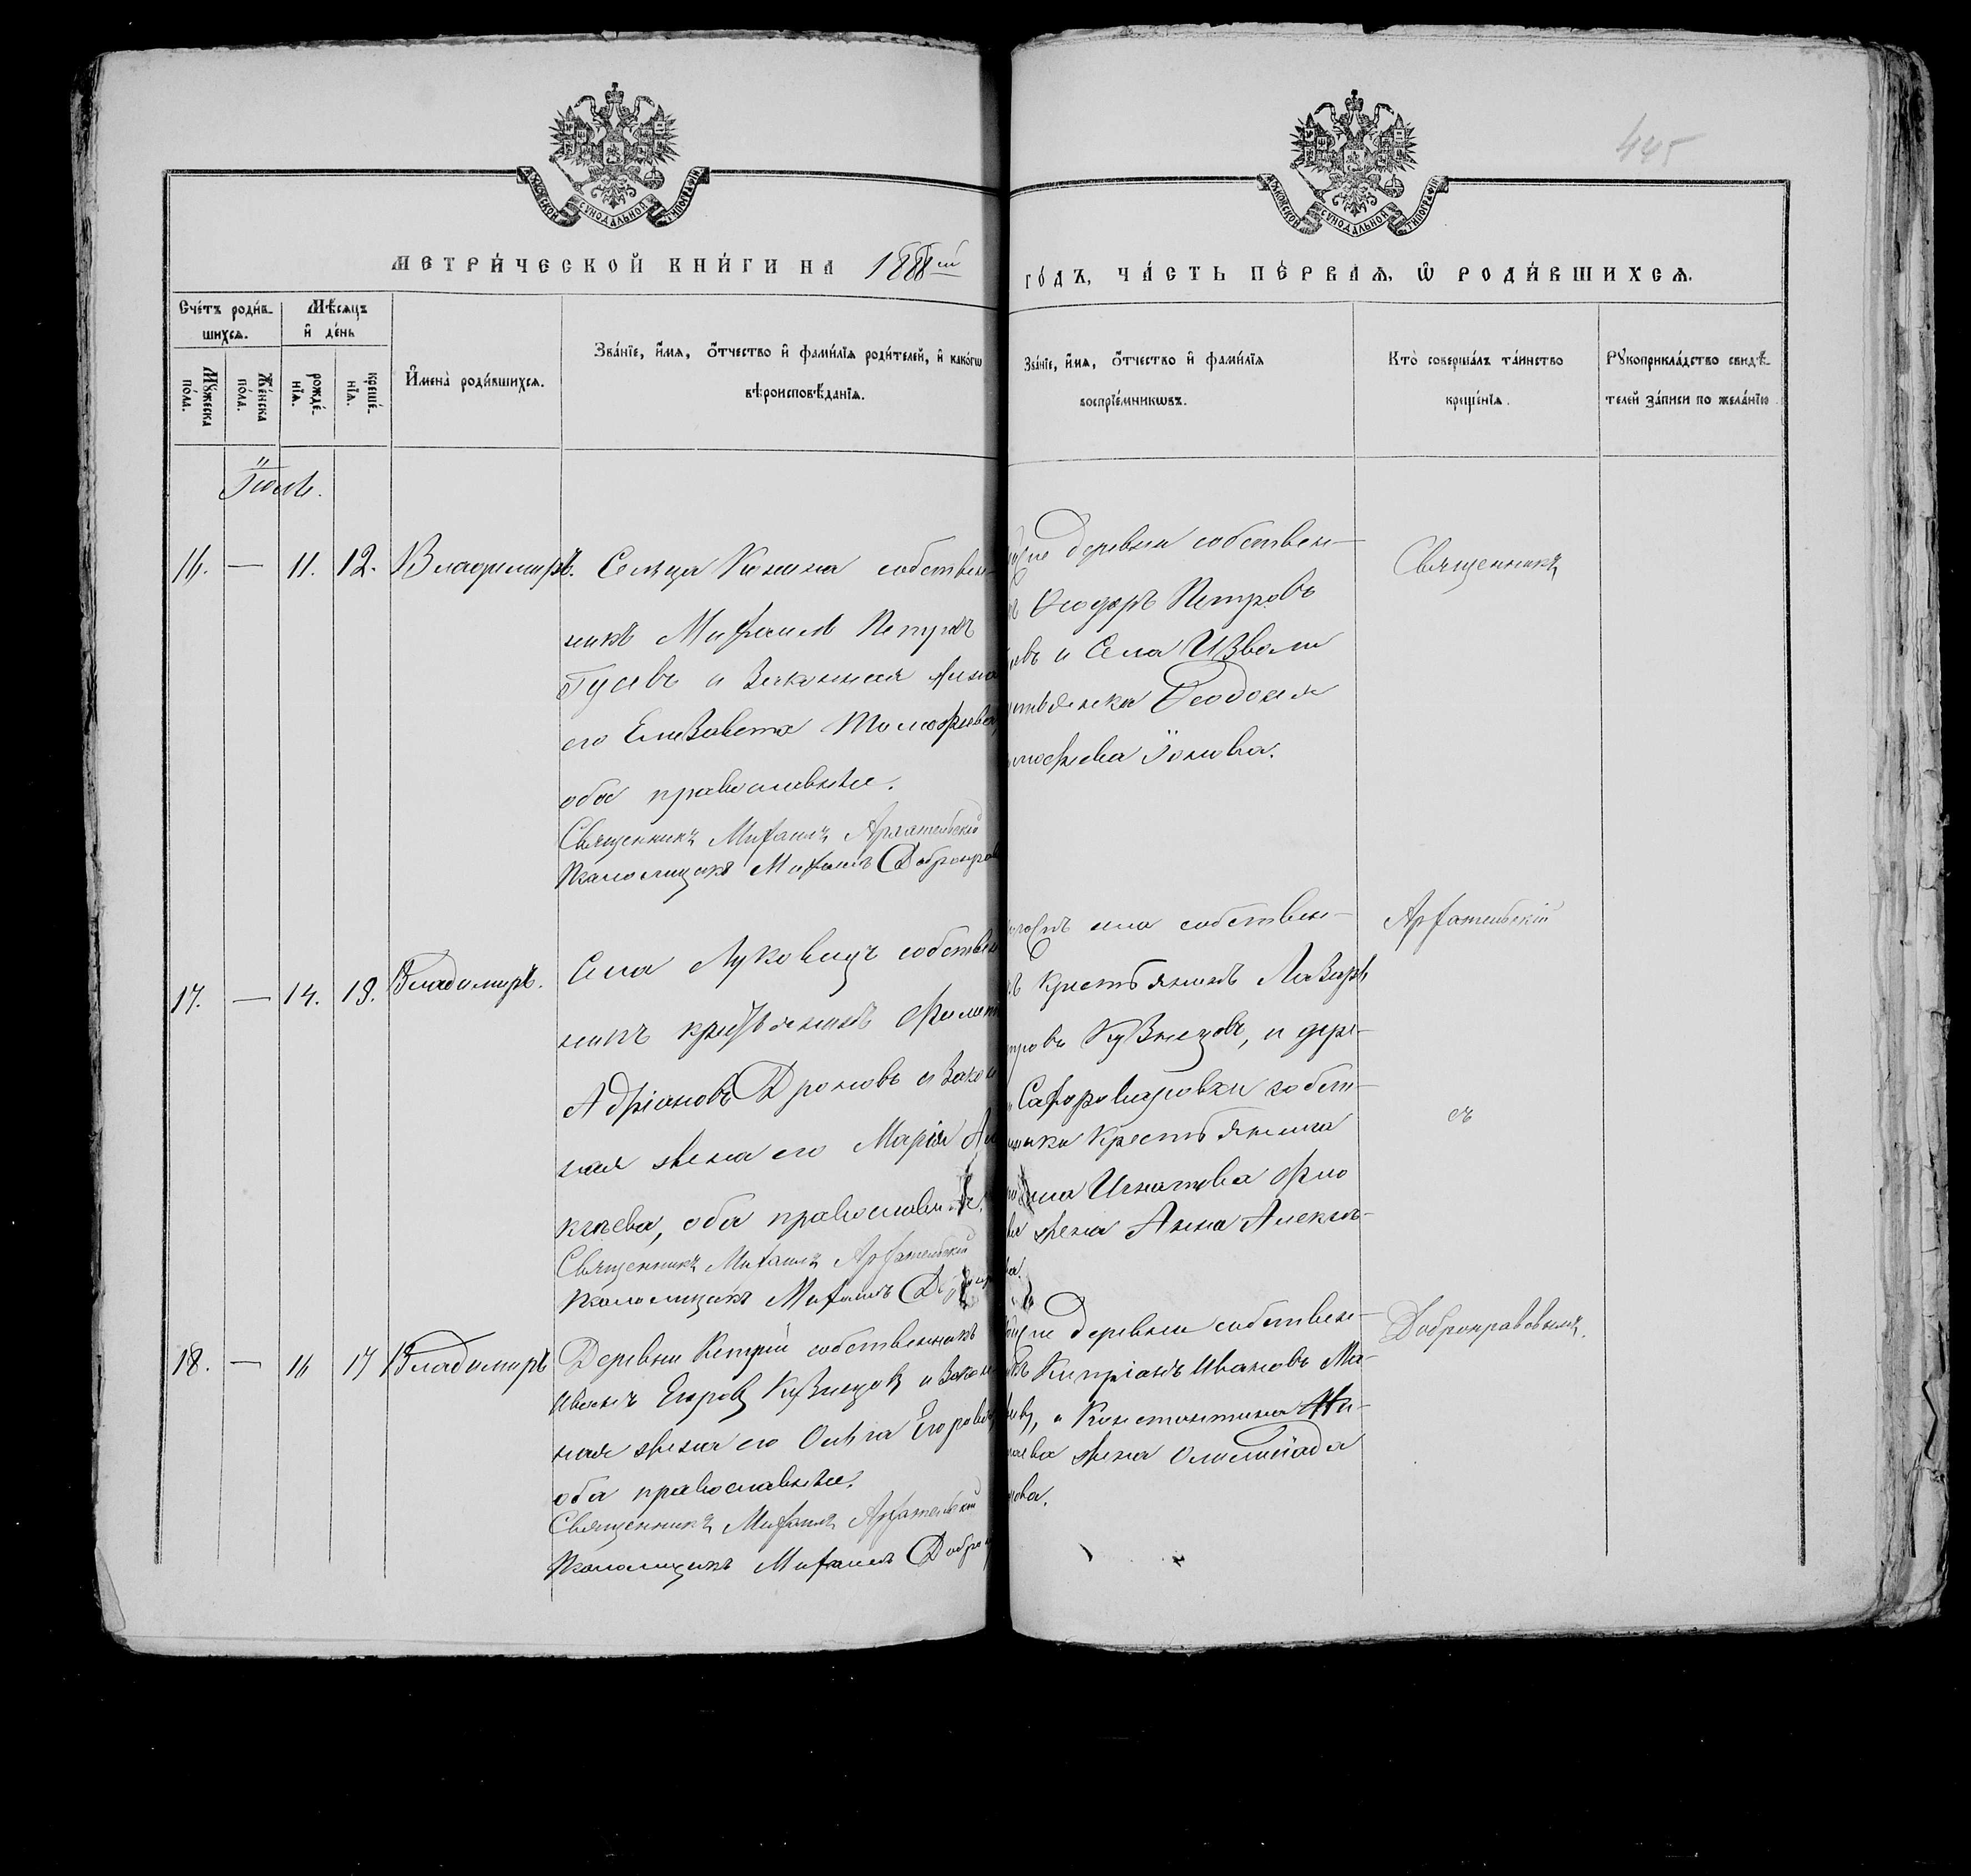 445
МОСКОВСКОЙ СУНОДАЛЬНОЙ ТИПОГРАФІИ
МОСКОВСКОЙ СУНОДАЛЬНОЙ ТИПОГРАФІИ
МЕТРИ́ЧЕСКОЙ КНИ́ГИ НА 1888ій
ГО́ДЪ, ЧА́СТЬ ПЕ́РВАѦ, Ѿ РОДИ́ВШИХСѦ.
Сче́тъ роди́в-
шихсѧ.
Мѣ́сѧцъ
и҆ де́нь
Мꙋ́жеска
по́ла.
Же́нска
по́ла.
рожде́-
нїѧ.
креще́-
нїѧ.
И҆мена̀ роди́вшихсѧ.
Зва́нїе, и҆́мѧ, ѻ҆́тчество и҆ фами́лїѧ роди́телей, и҆ како́гѡ
вѣроисповѣ́данїѧ.
Зва́нїе, и҆́мѧ, ѻ҆́тчество и҆ фами́лїѧ
воспрїе́мникѡвъ.
Кто̀ соверша́лъ та́инство
креще́нїѧ.
Рꙋкоприкла́дство свидѣ́-
телей за́писи по жела́нїю
Іюль.
16. — 11. 12. Владиміръ. Сельца собствен-
никъ Михаилъ Петровъ
Гусевъ и Законная жена
его Елизавета Тимофеева,
оба православные.
Священникъ Михаилъ Арфательскій
Псаломщикъ Михаилъ Доброправ
деревни собствен-
Ѳеодоръ Петровъ
и Села Изволи
Ѳеодосія
Іонова.
Священникъ
17. — 14. 18. Владиміръ.
Села Луковицъ собствен
никъ крестьянинъ
Адріановъ Дроновъ и Закон
ная жена его Марія Ал
оба православные.
Священникъ Михаилъ Арфательскій
Псаломщикъ Михаилъ
села собствен-
крестьянинъ Лазарь
Кузнецовъ, и дере-
собст-
крестьянина
Игнатова
жена Анна Алексѣ-
Арфательскій
съ
18. — 16 17 Владиміръ
Деревни собственникъ
Иванъ Егоровъ Кузнецовъ и Закон
ная жена его Ольга Егорова,
оба православные.
Священникъ Михаилъ Арфательскій
Псаломщикъ Михаилъ Добро
деревни собствен-
Кипріанъ Ивановъ Ма-
и Константина Ни-
жена Олимпіада
Доброправовымъ.